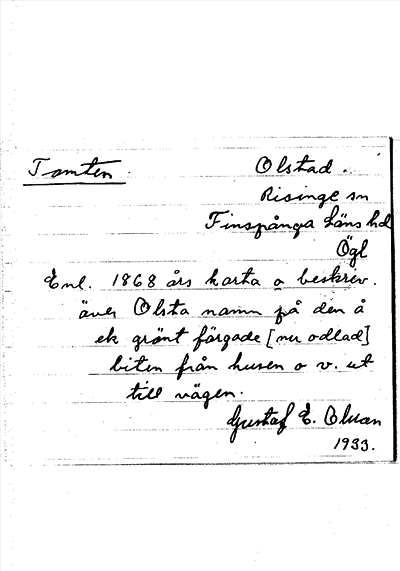 Tomten.
Olstad.
Risinge sn
Finspånga Läns hd
Ögl
Enl. 1868 års karta o beskriv.
över Olsta namn på den å
ek grönt färgade [nu odlad]
biten från husen o v. ut
till vägen.
Gustaf E. Olsson
1933.